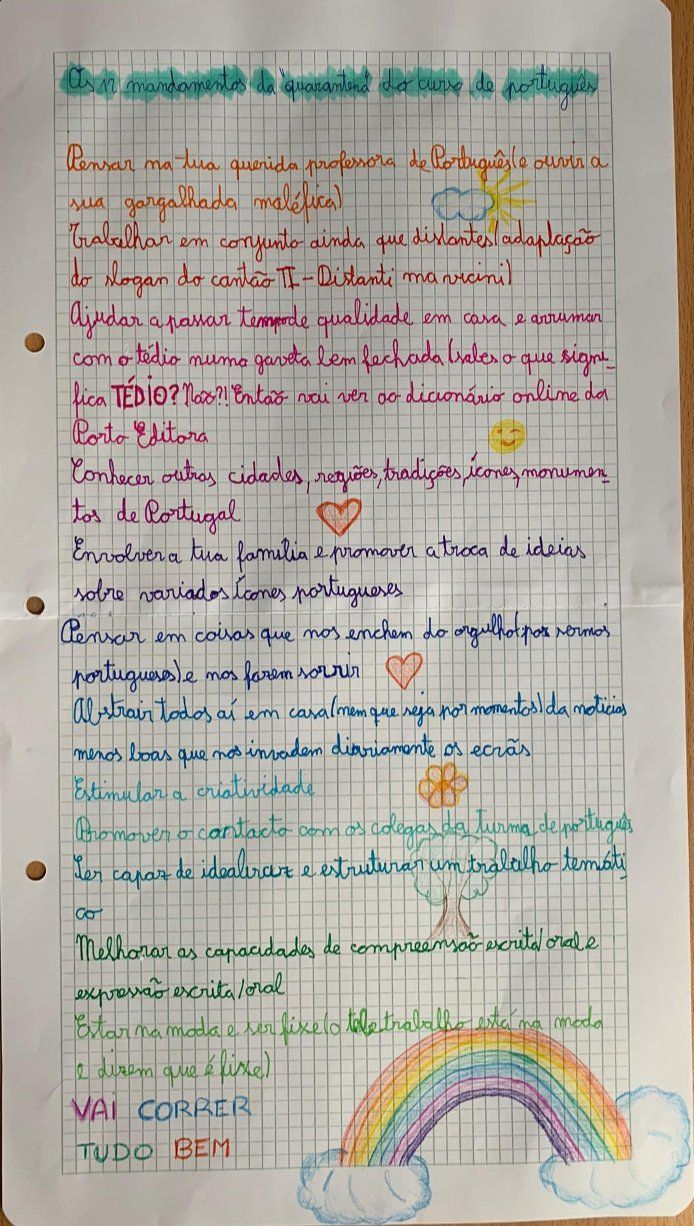 As 12 mandamentos da "quarantena" do curso de português
Pensar na tua querida professora de Português(e ouvir a
sua gargalhada maléfica)
Trabalhar em conjunto ainda que distantes(adaplação
do slogan do cantão TI-Distanti ma vicini)
Ajudar a passar tempo de qualidade em casa e arrumar
com o tédio numa gaveta bem fechada(sabes o que signi_
fica TÉDIO? Nao?! Então vai ver ao dicionário online da
Porto Editora
Conhecer outras cidades, regiões, tradições, ícones, monumen_
tos de Portugal
Envolver a tua família e promover a troca de ideias
sobre variados ícones portugueses
Pensar em coisas que nos enchem do orgulho(por sermos
portugueses) e nos fazem sorrir
Abstrair todos aí em casa(nem que seja por momentos) da noticias
menos boas que nos invadem diariamente os ecrãs
Estimular a criatividade
Promover o contacto com os colegas da turma de português
Ser capaz de idealizar e estruturar um trabalho temáti_
co
Melhorar as capacidades de compreensão escrita/oral e
expressão escrita/oral
Estar na moda e ser fixe(o teletrabalho está na moda
e dizem que é fixe)
VAI CORRER
TUDO BEM